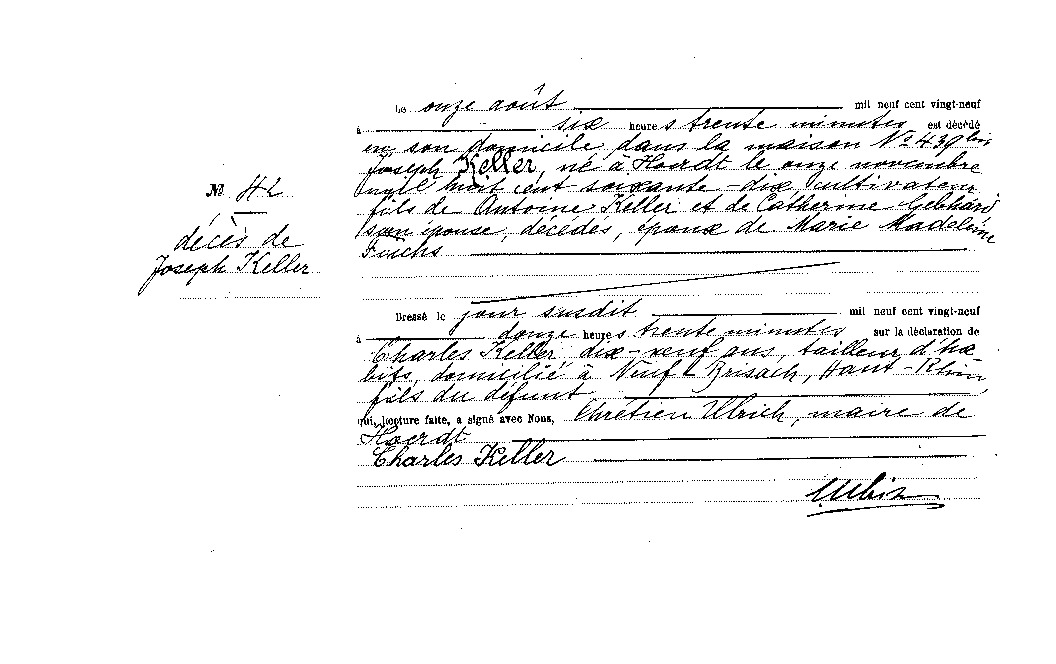 Nº 42
décès de
Joseph Keller
Le onze août mil neuf cent vingt-neuf
à six heures trente minutes est décédé
en son domicile dans la maison Nº 439bis
Joseph Keller, né à Hoerdt le onze novembre
mil huit cent soixante-dix, cultivateur
fils de Antoine Keller et de Catherine Gebhard
son épouse, décédés, époux de Marie Madeleine
Fuchs
Dressé le jour susdit mil neuf cent vingt-neuf
à douze heures trente minutes sur la déclaration de
Charles Keller, dix-neuf ans, tailleur d'ha
bits, domicilié à Neuf-Brisach, Haut-Rhin,
fils du défunt
qui, lecture faite, a signé avec Nous, Chrétien Ulrich, maire de
Hoerdt
Charles Keller